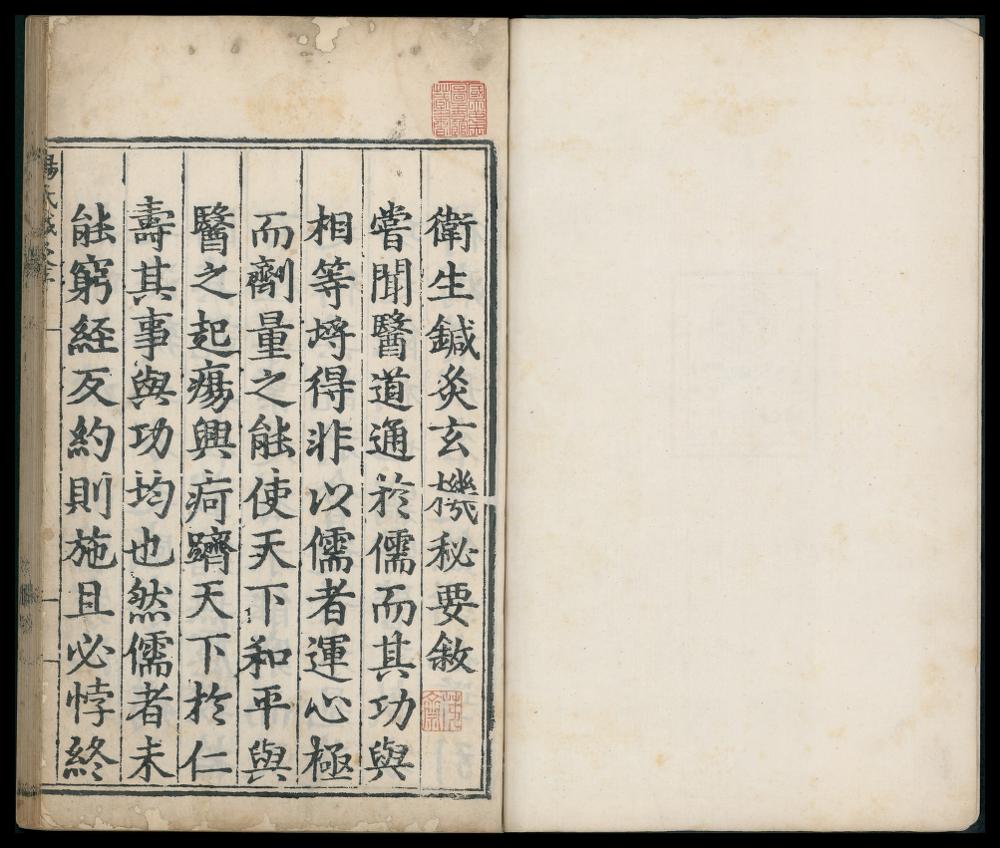 衛生鍼灸玄機秘要敘
嘗聞醫道通於儒而其功與
相等埒得非以儒者運心極
而劑量之能使天下和平與
醫之起瘍興疴躋天下於仁
壽其事與功均也然儒者未
能窮經反約則施且必悖終